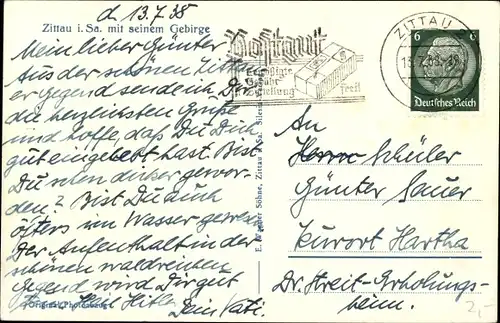 d 13.7.38
Zittau i. Sa. mit seinem Gebirge
Mein lieber Günter
Aus der schönen Zittau
er Gegend sende ich Dir
die herzlichsten Grüße
und hoffe, daß Du Dich
gut eingelebt hast. Bist
Du schon dicker gewor-
den? Bist Du auch
öfters im Wasser gewesen
Der Aufenthalt in der
schönen waldreichen
Gegend wird Dir gut
Heil Hitler
Dein Vati.
Original-Photographie
Zittau i. Sa.
Postgut
Zustellung
frei!
ZITTAU
6 6
Deutsches Reich
An
Herrn Schüler
Günter Sauer
Kurort Hartha
Dr. Streit-Erholungs-
heim.
2,-